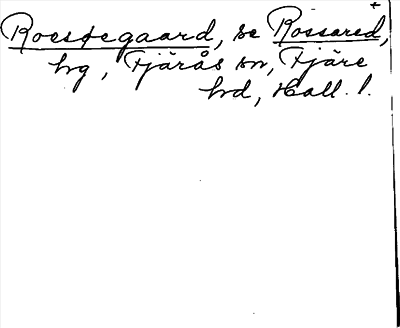 Roestegaard, se Rossared+,
hg, Fjärås sn, Fjäre
hd, Hall. l.